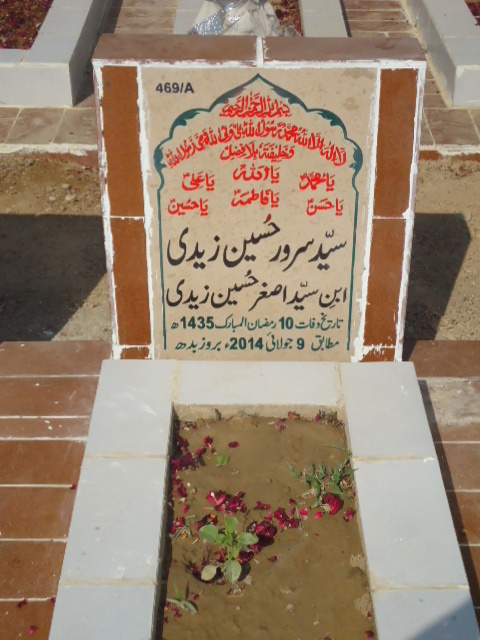 469/A
بسم اللہ الرحمن الرحیم
لا الہ الا اللہ محمد رسول اللہ علی ولی اللہ وصی رسول اللہ
وخلیفتہ بلا فصل
یا اللہ
یا محمدؐ یا علیؑ
یا حسنؑ یا فاطمہؑ یا حسینؑ
سیّد سرور حُسین زیدی
ابن سیّد اصغر حُسین زیدی
تاریخ وفات 10 رمضان المبارک 1435ھ
مطابق 9 جولائی 2014ء بروز بدھ